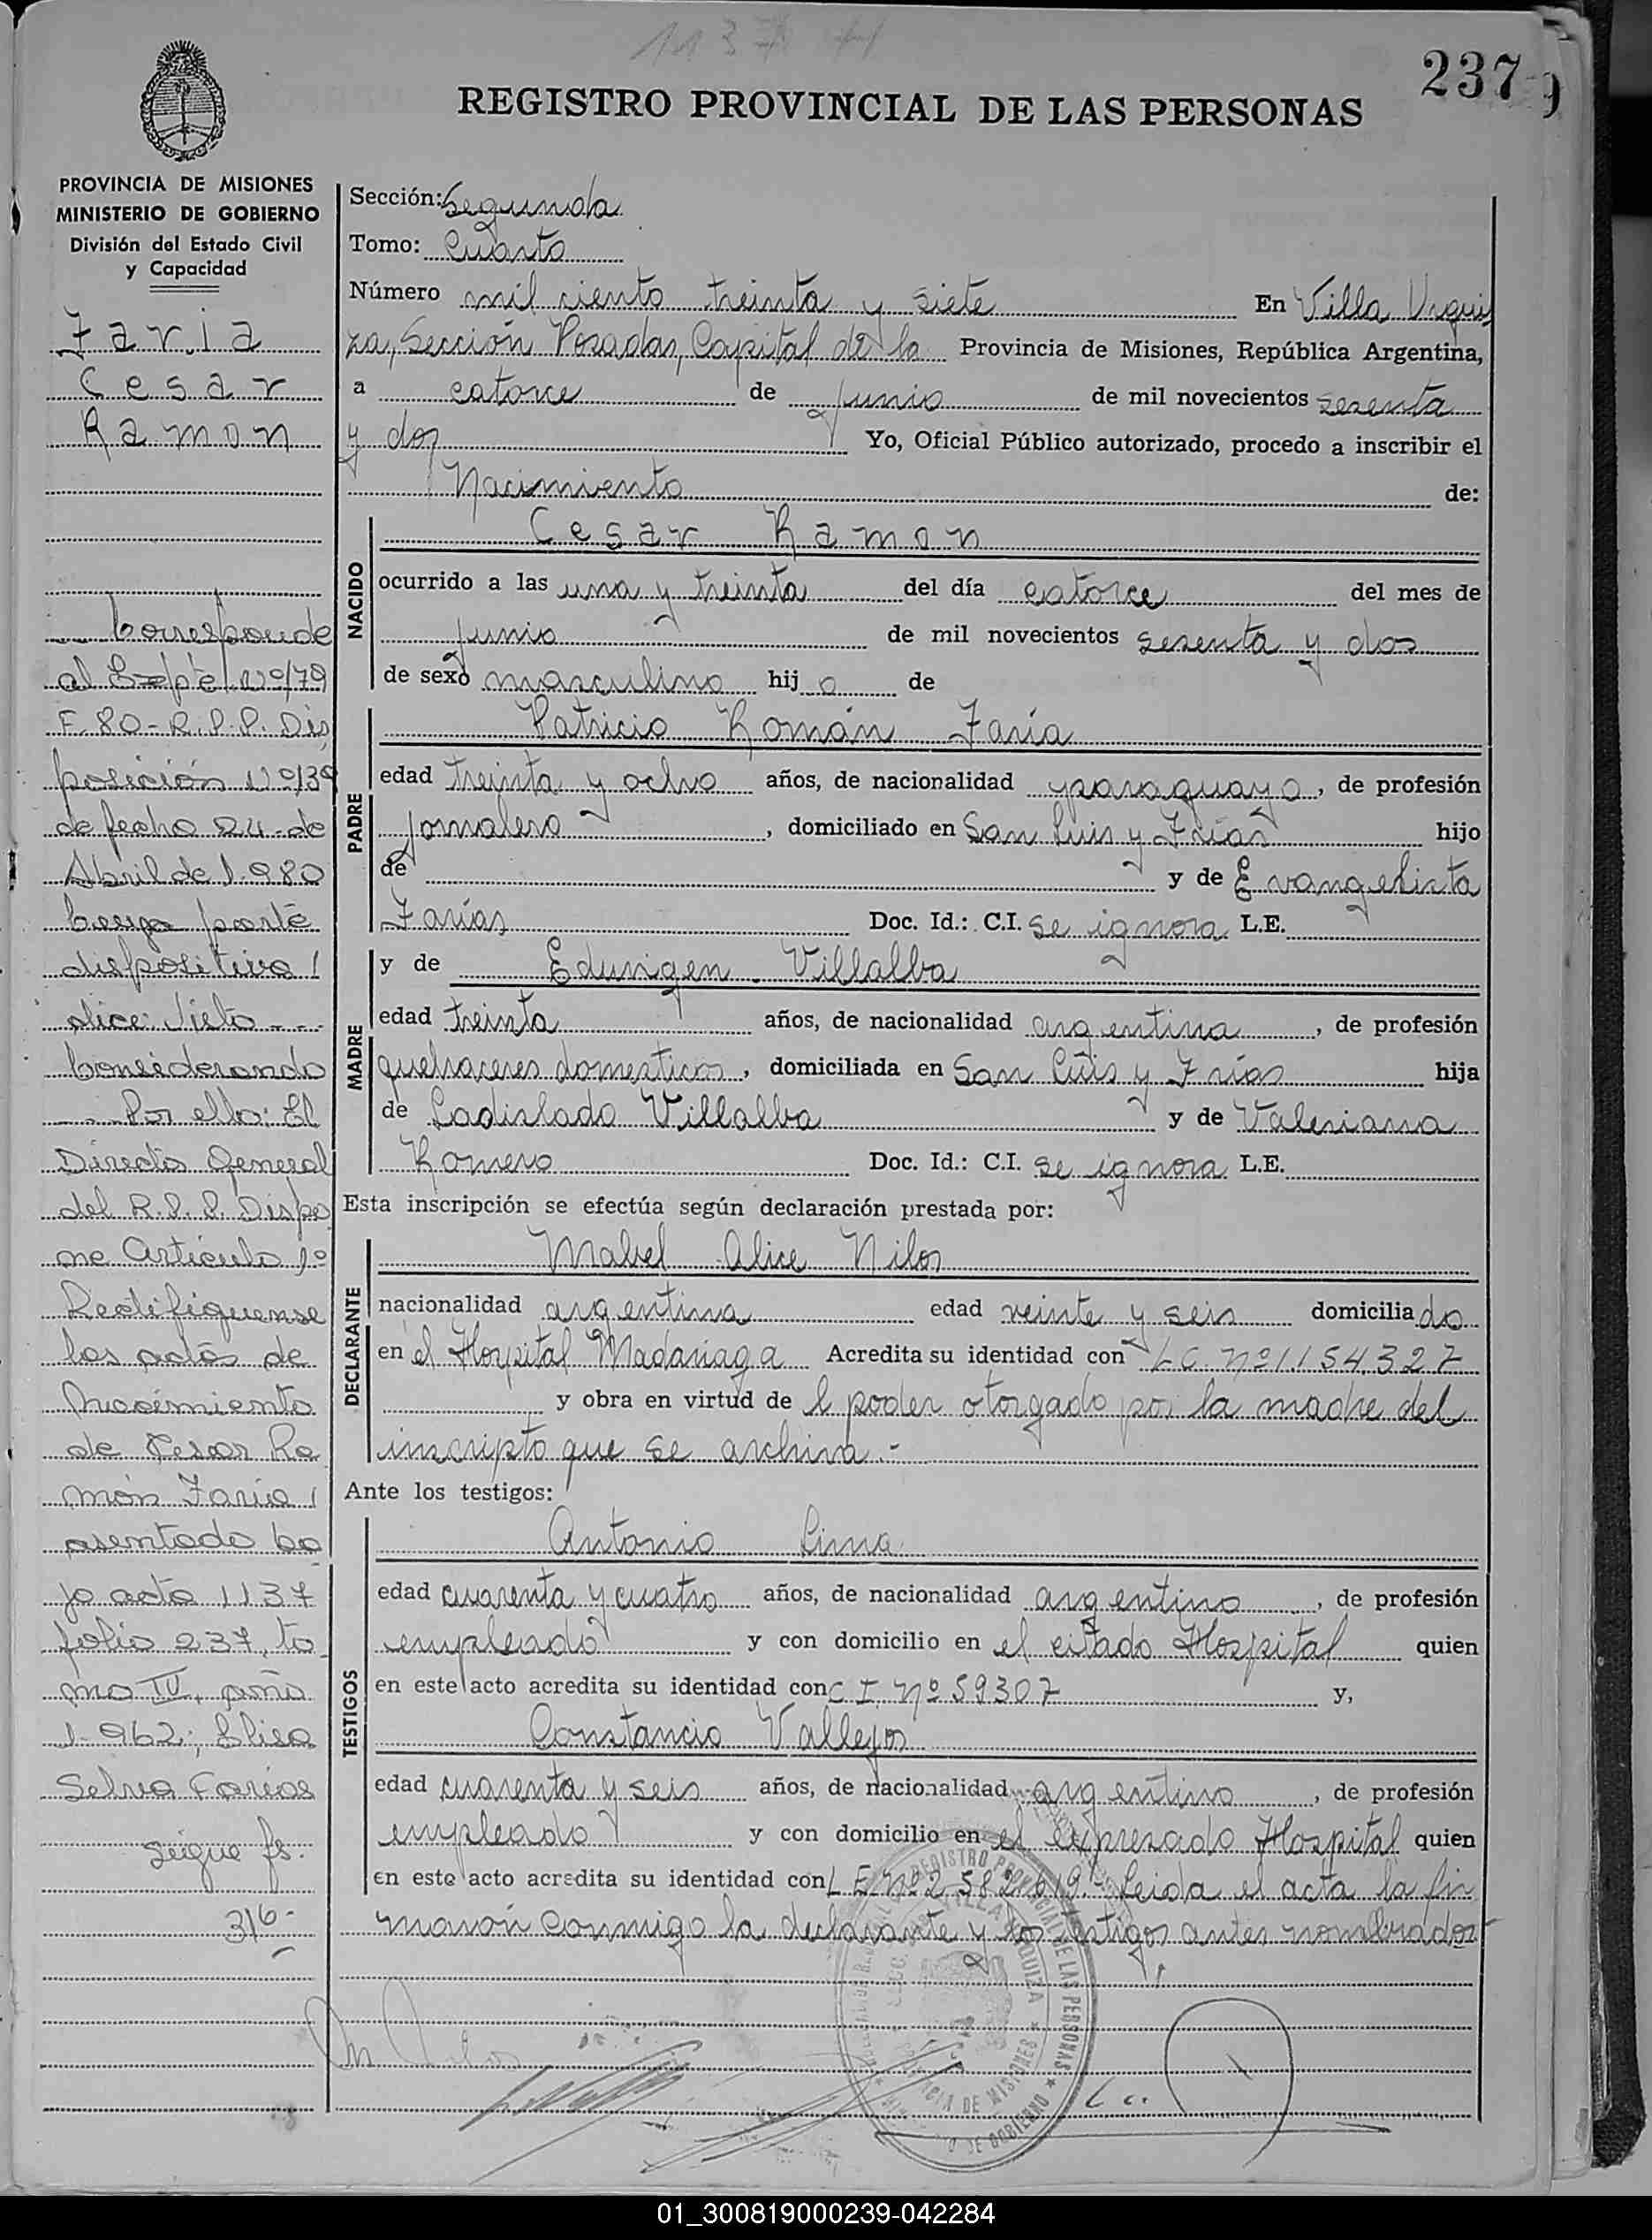 1137
237
REGISTRO PROVINCIAL DE LAS PERSONAS
PROVINCIA DE MISIONES
MINISTERIO DE GOBIERNO
División del Estado Civil
y Capacidad
Faria
Cesar
Ramon
Corresponde
al Expte Nº179
F. 80 - R.P.P. Dis
posición Nº139
de fecha 24 de
Abril de 1.980
Cuya parte
dispositiva
dice: Visto - - -
Considerando
Por ello: El
Director General
del R.P.P. Dispo
ne Artículo 1º
Rectifiquense
las actas de
Nacimiento
de Cesar Ra
món Faria
asentado ba
jo acta 1137
folio 237, to
mo IV, año
1.962; Elisa
Selva Farias
sigue fs.
316-
Sección: Segunda
Tomo: Cuarto
Número mil ciento treinta y siete En Villa Urqui
za, Sección Posadas, Capital de la Provincia de Misiones, República Argentina,
a catorce de junio de mil novecientos sesenta
y dos Yo, Oficial Público autorizado, procedo a inscribir el
Nacimiento de:
NACIDO
Cesar Ramon
ocurrido a las una y treinta del día catorce del mes de
junio de mil novecientos sesenta y dos
de sexo masculino hijo de
PADRE
Patricio Román Faría
edad treinta y ocho años, de nacionalidad paraguayo, de profesión
jornalero, domiciliado en San Luis y Frías hijo
de y de Evangelista
Farías Doc. Id.: C.I. se ignora L.E.
MADRE
y de Eduvigen Villalba
edad treinta años, de nacionalidad argentina, de profesión
quehaceres domesticos, domiciliada en San Luis y Frías hija
de Ladislado Villalba y de Valeriana
Romero Doc. Id.: C.I. se ignora L.E.
Esta inscripción se efectúa según declaración prestada por:
DECLARANTE
Mabel Alice Nilos
nacionalidad argentina edad veinte y seis domiciliado
en el Hospital Madariaga Acredita su identidad con LC Nº 1154327
y obra en virtud de l poder otorgado por la madre del
inscripto que se archiva.-
Ante los testigos:
TESTIGOS
Antonio Lima
edad cuarenta y cuatro años, de nacionalidad argentino, de profesión
empleado y con domicilio en el citado Hospital quien
en este acto acredita su identidad con C I Nº 59307 y,
Constancio Vallejos
edad cuarenta y seis años, de nacionalidad argentino, de profesión
empleado y con domicilio en el expresado Hospital quien
en este acto acredita su identidad con L E Nº 2.582.619.- Leida el acta la fir
maron conmigo la declarante y los testigos antes nombrados
REGISTRO PROVINCIAL DE LAS PERSONAS
VILLA URQUIZA
PROVINCIA DE MISIONES
01_300819000239-042284